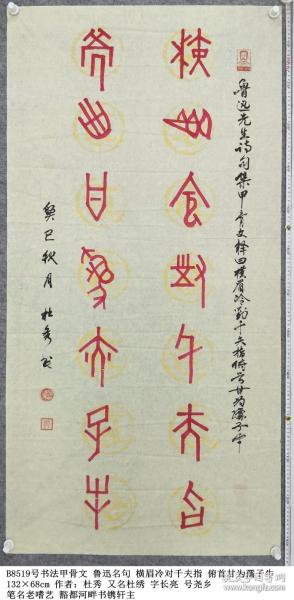 魯迅先生詩句集甲骨文释曰橫眉冷對千夫指俯首甘为孺子牛
橫眉冷對千夫指
俯首甘為孺子牛
癸巳秋月 杜秀书
B8519号书法甲骨文 鲁迅名句 横眉冷对千夫指 俯首甘为孺子牛
132×68cm 作者：杜秀 又名杜绣 字长亮 号尧乡
笔名老嗜艺 豁都河畔书镌轩主